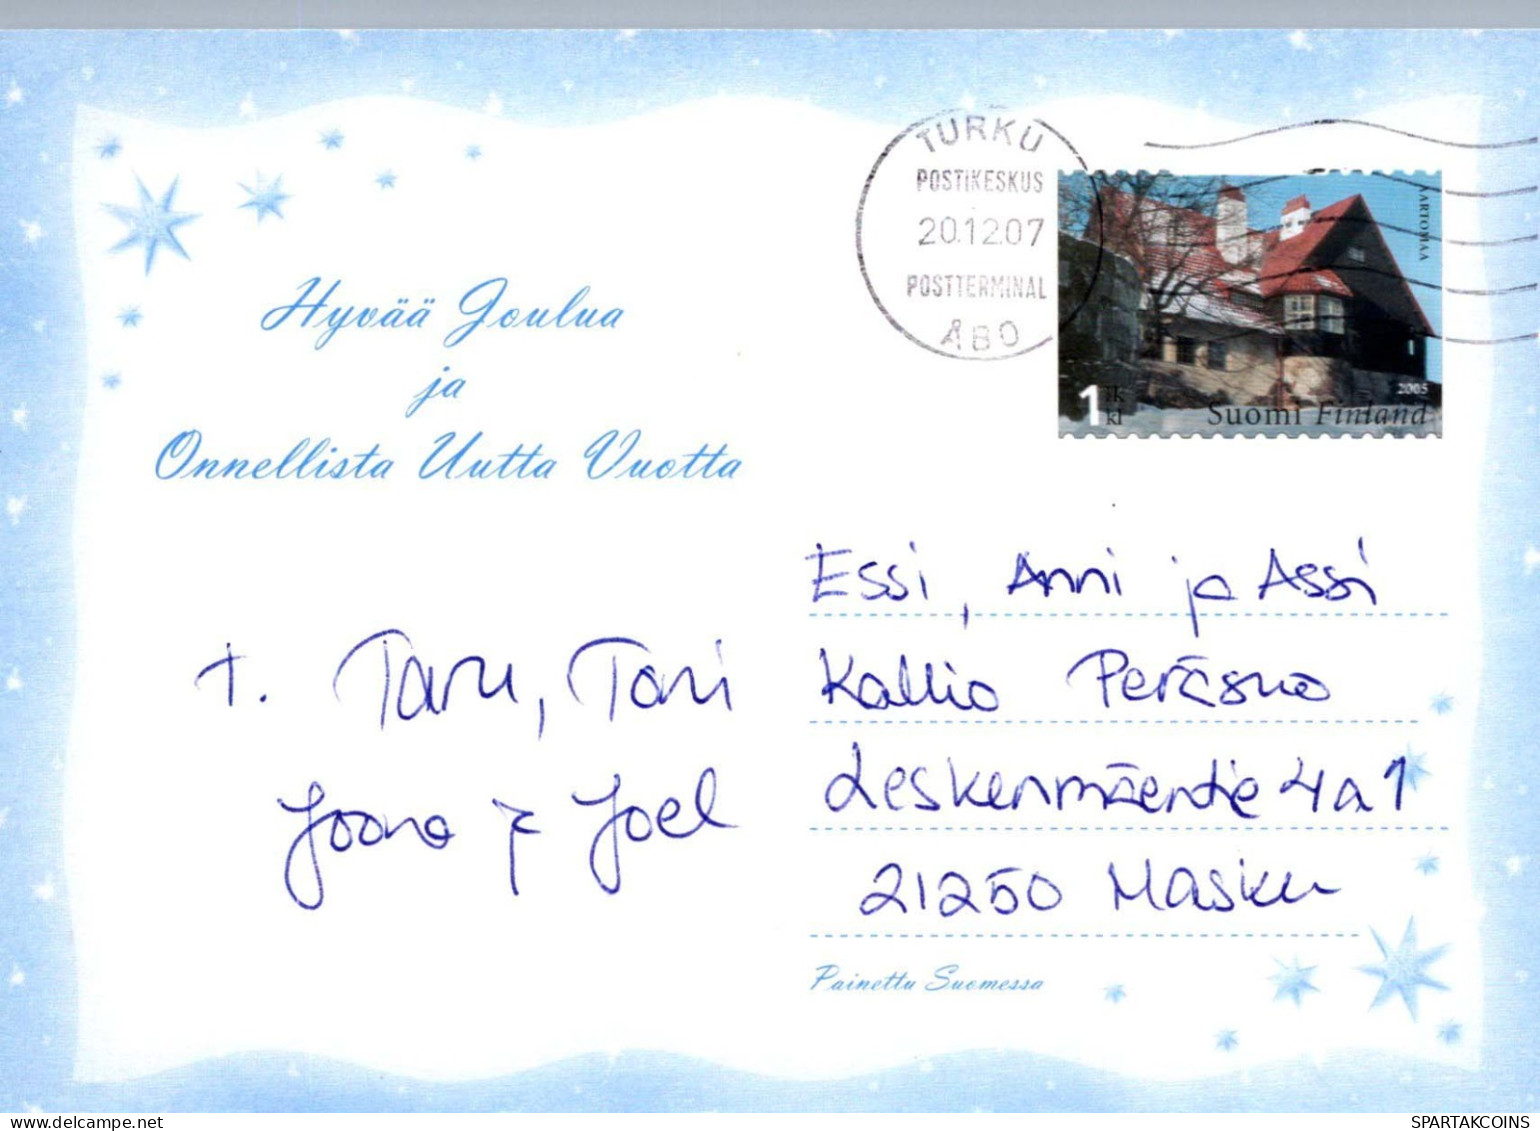 TURKU
POSTIKESKUS
20.12.07
POSTTERMINAL
ÅBO
TARTOMAA
2005
1 lk
kl
Suomi Finland
Hyvää Joulua
ja
Onnellista Uutta Vuotta
t. Taru, Toni
Joona ja Joel
Essi, Anni ja Assi
Kallio Peräsuo
Leskenmäentie 4 a 1
21250 Masku
Painettu Suomessa
SPARTAKCOINS
delcampe.net